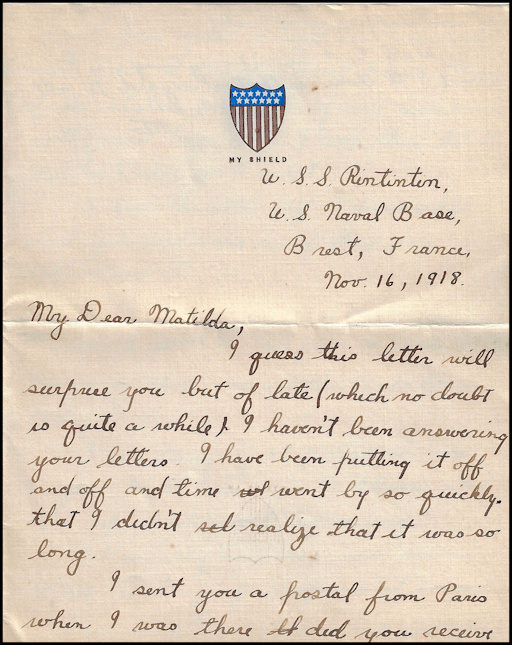 MY SHIELD
U. S. S. Rintinten,
U. S. Naval Base,
Brest, France,
Nov. 16, 1918.
My Dear Matilda,
I guess this letter will
surprise you but of late (which no doubt
is quite a while) I haven't been answering
your letters. I have been putting it off
and off and time went by so quickly
that I didn't realize that it was so
long.
I sent you a postal from Paris
when I was there did you receive